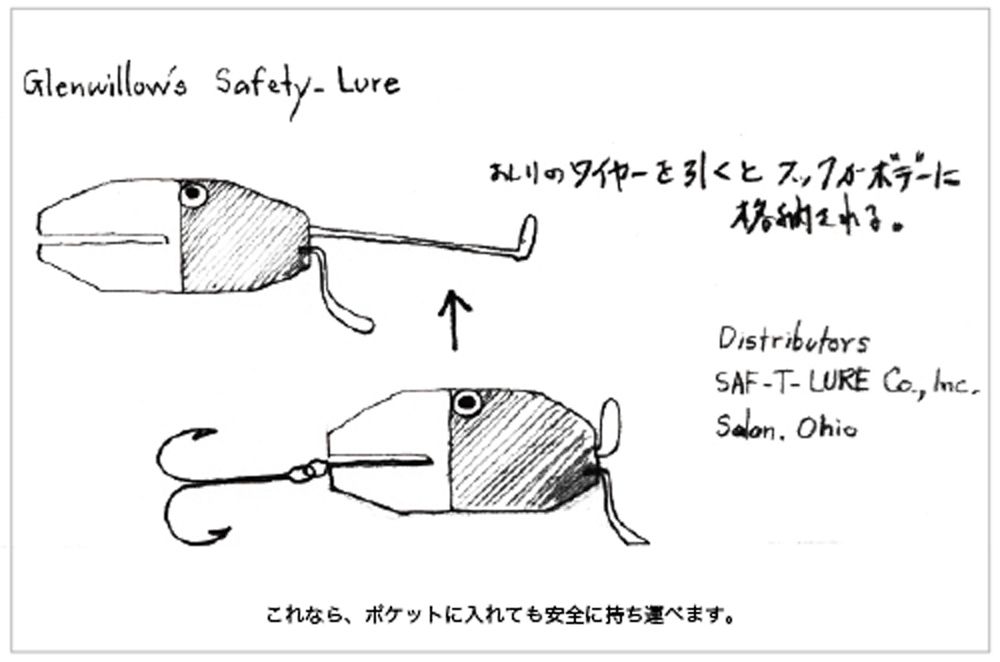 Glenwillow's Safety-Lure
おしりのワイヤーを引くと フックがボデーに
格納される。
Distributors
SAF-T-LURE Co., Inc.
Solon. Ohio
これなら、ポケットに入れても安全に持ち運べます。